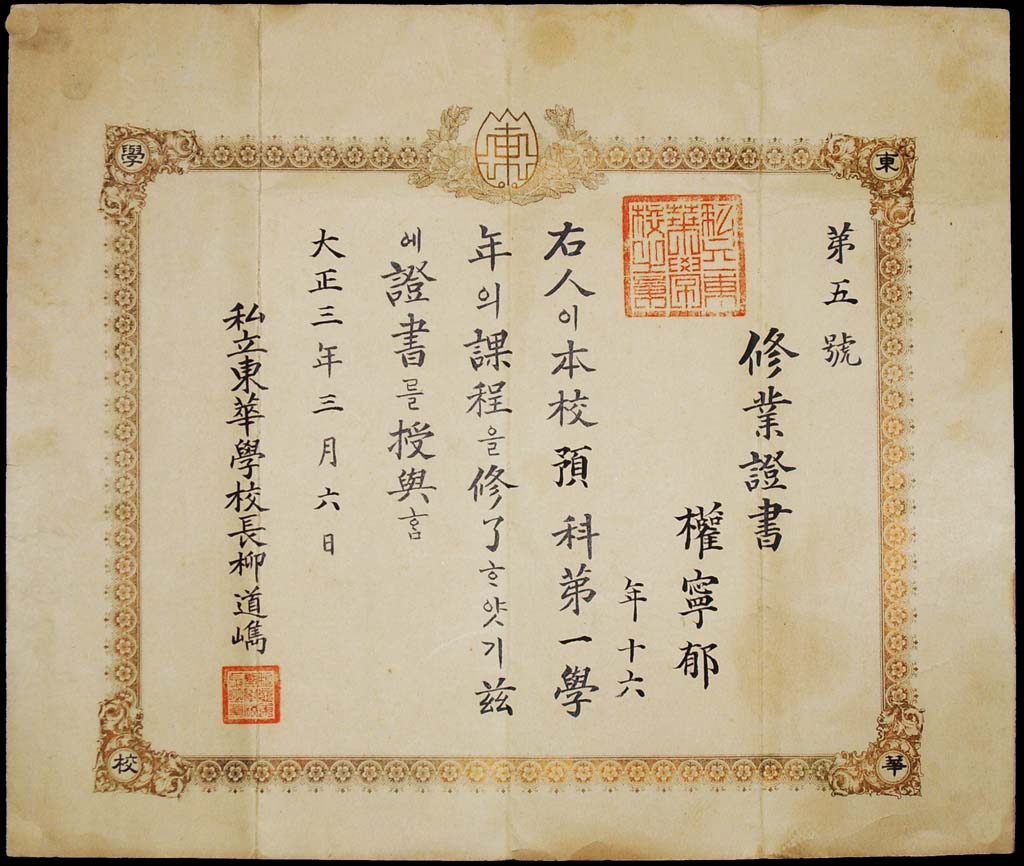 第五號
修業證書
權寧郁
年十六
右人이本校預科第一學
年의課程을修了ᄒᆞ얏기玆
에證書를授與홈
大正三年三月六日
私立東華學校長柳道㒞
東
華
學
校
東
私立東
華學
校之章